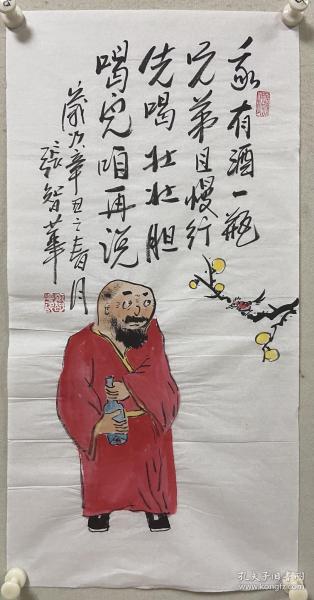 我有酒一瓶
兄弟且慢行
先喝壮壮胆
喝完咱再说
岁乃辛丑之春月
张智华
孔夫子旧书网
www.kongfz.com